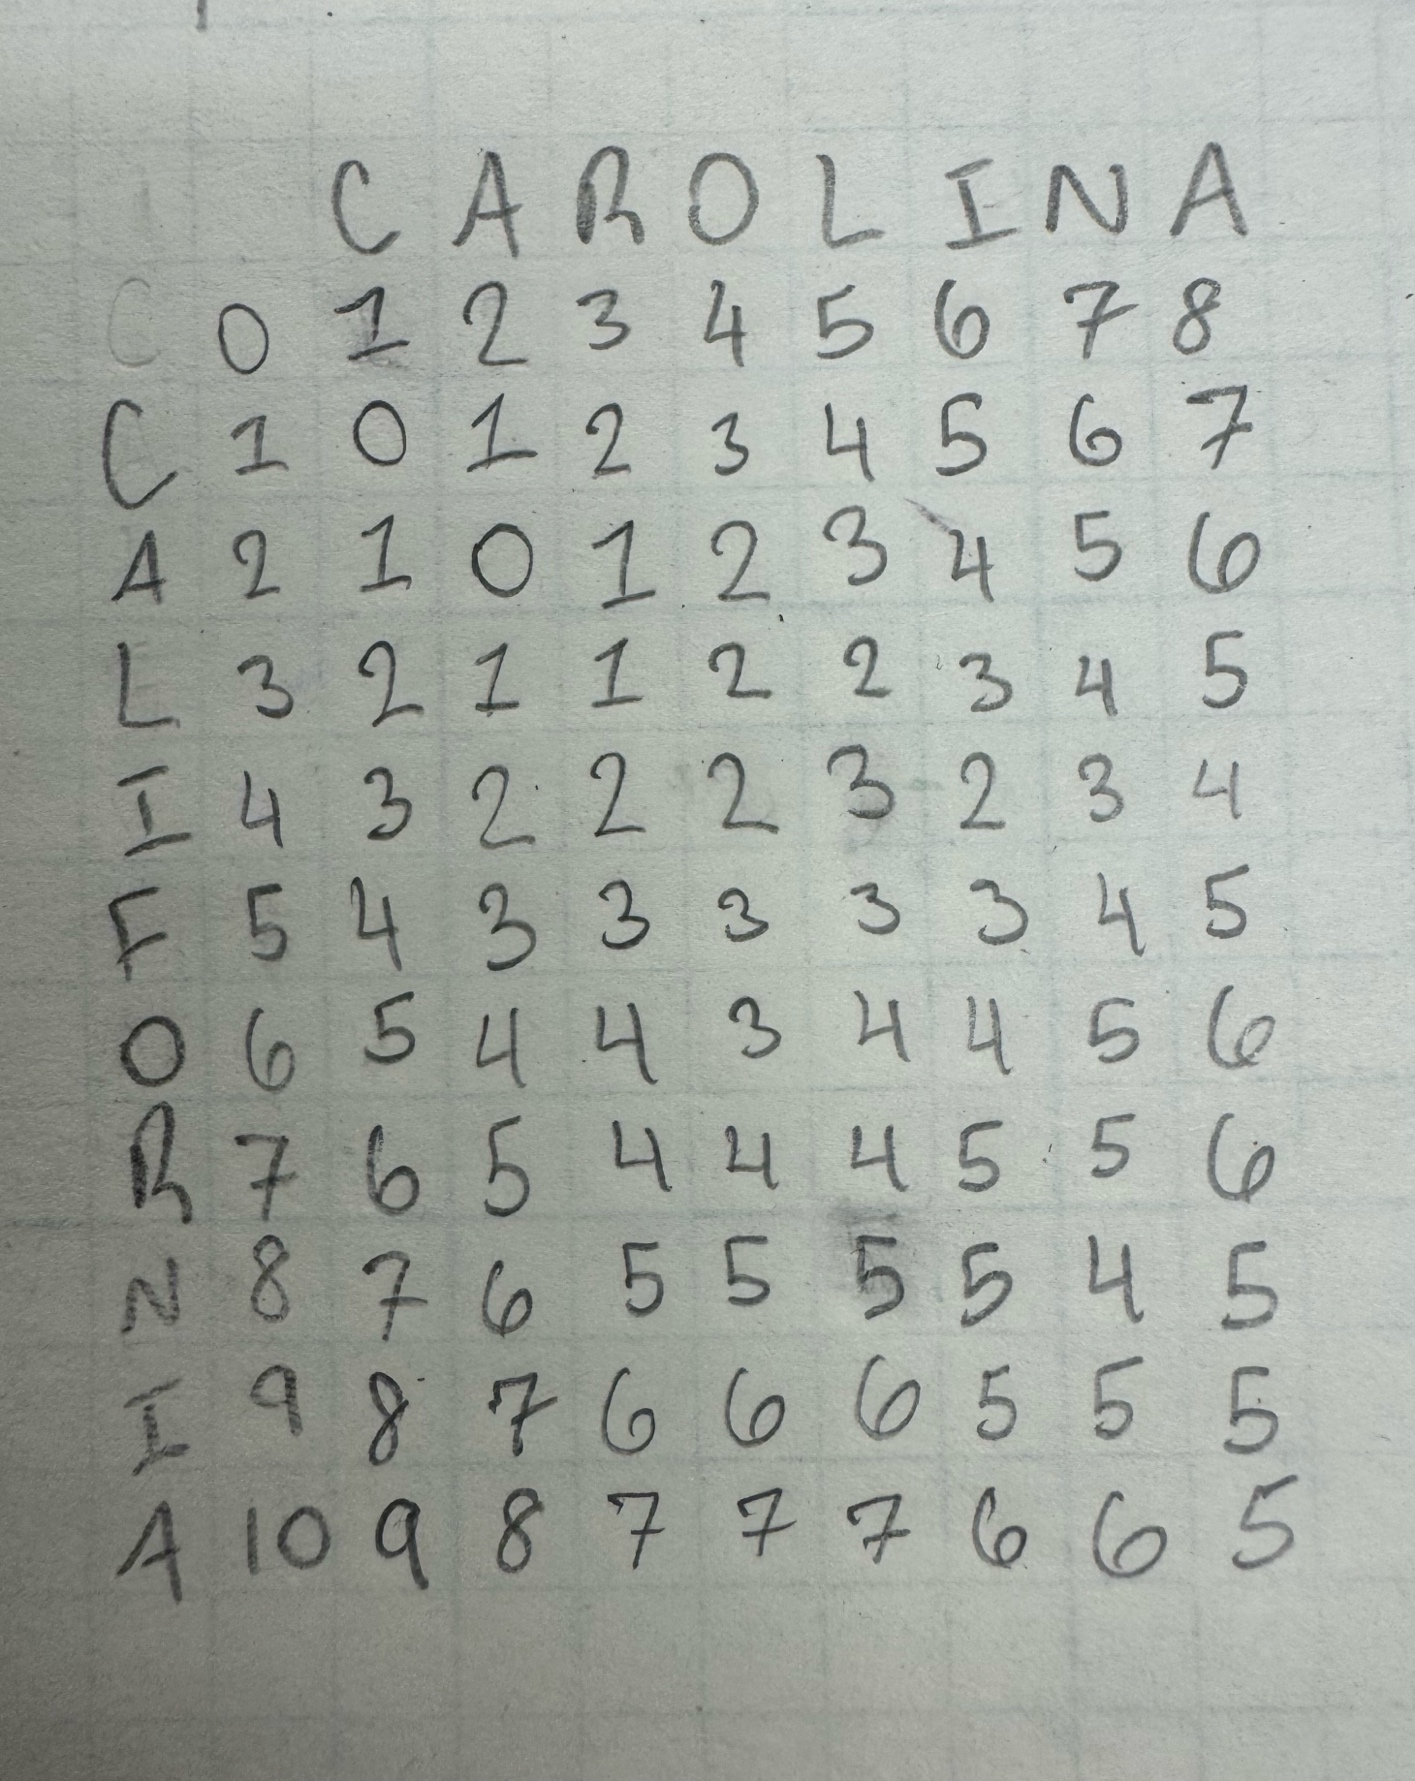 C A R O L I N A
C 0 1 2 3 4 5 6 7 8
C 1 0 1 2 3 4 5 6 7
A 2 1 0 1 2 3 4 5 6
L 3 2 1 1 2 2 3 4 5
I 4 3 2 2 2 3 2 3 4
F 5 4 3 3 3 3 3 4 5
O 6 5 4 4 3 4 4 5 6
R 7 6 5 4 4 4 5 5 6
N 8 7 6 5 5 5 5 4 5
I 9 8 7 6 6 6 5 5 5
A 10 9 8 7 7 7 6 6 5